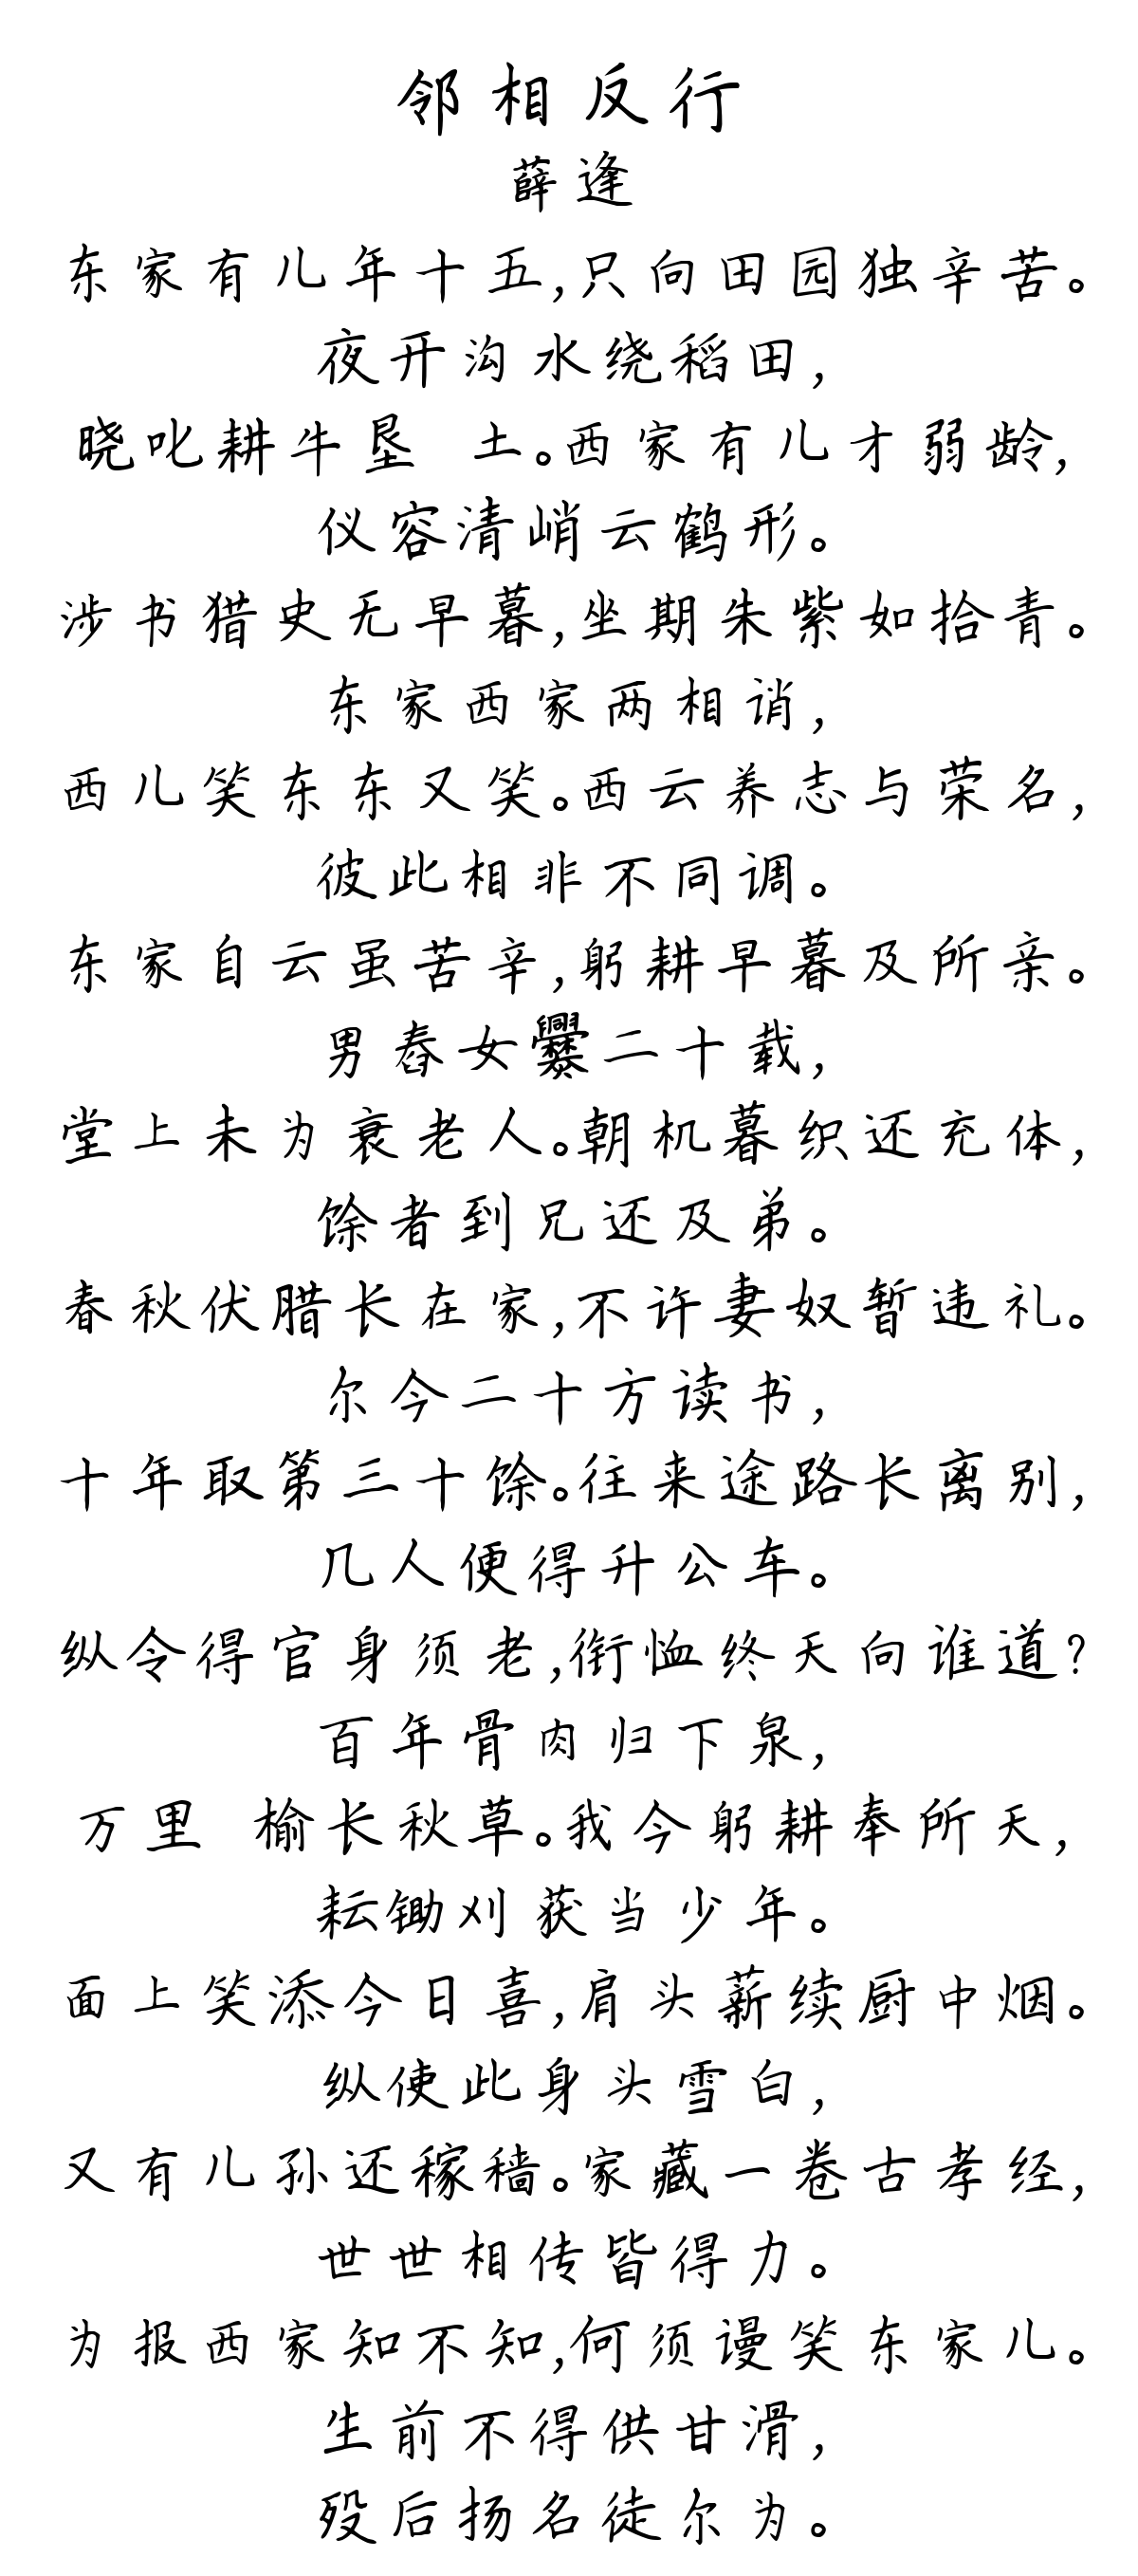 邻相反行
薛逢
东家有儿年十五,只向田园独辛苦。
夜开沟水绕稻田,
晓叱耕牛垦 土。西家有儿才弱龄,
仪容清峭云鹤形。
涉书猎史无早暮,坐期朱紫如拾青。
东家西家两相诮,
西儿笑东东又笑。西云养志与荣名,
彼此相非不同调。
东家自云虽苦辛,躬耕早暮及所亲。
男舂女爨二十载,
堂上未为衰老人。朝机暮织还充体,
馀者到兄还及弟。
春秋伏腊长在家,不许妻奴暂违礼。
尔今二十方读书,
十年取第三十馀。往来途路长离别,
几人便得升公车。
纵令得官身须老,衔恤终天向谁道?
百年骨肉归下泉,
万里 榆长秋草。我今躬耕奉所天,
耘锄刈获当少年。
面上笑添今日喜,肩头薪续厨中烟。
纵使此身头雪白,
又有儿孙还稼穑。家藏一卷古孝经,
世世相传皆得力。
为报西家知不知,何须谩笑东家儿。
生前不得供甘滑,
殁后扬名徒尔为。